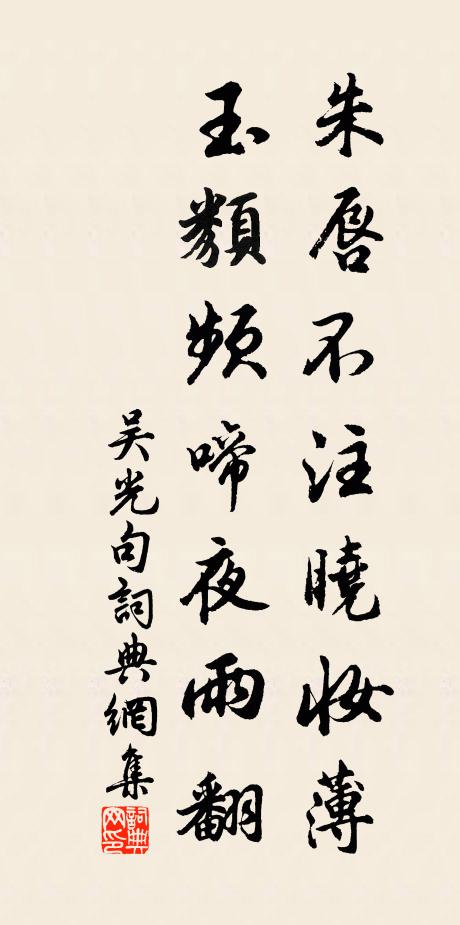 朱唇不注曉妝薄
玉纇頻啼夜雨翻
吳光句詞典網集
詞典網印